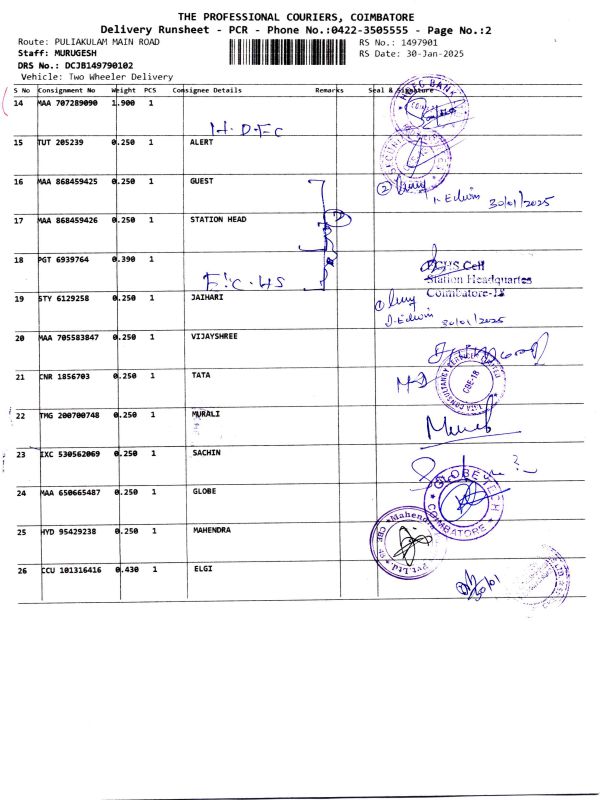 THE PROFESSIONAL COURIERS, COIMBATORE
Delivery Runsheet - PCR - Phone No.:0422-3505555 - Page No.:2
Route: PULIAKULAM MAIN ROAD RS No.: 1497901
Staff: MURUGESH RS Date: 30-Jan-2025
DRS No.: DCJB149790102
Vehicle: Two Wheeler Delivery
S No Consignment No Weight PCS Consignee Details Remarks Seal & Signature
14 MAA 707289090 1.900 1
H.D.F.C
15 TUT 205239 0.250 1 ALERT
16 MAA 868459425 0.250 1 GUEST
② 
I. Edwin 30/01/2025
17 MAA 868459426 0.250 1 STATION HEAD
18 PGT 6939764 0.390 1
E.C.HS
ECHS Cell
Station Headquartes
Coimbatore-18
19 STY 6129258 0.250 1 JAIHARI
①
I. Edwin 30/01/2025
20 MAA 705583847 0.250 1 VIJAYSHREE
21 CNR 1856703 0.250 1 TATA
CBE-18
22 TMG 200700748 0.250 1 MURALI
23 IXC 530562069 0.250 1 SACHIN
24 MAA 650665487 0.250 1 GLOBE
GLOBE TECH
COIMBATORE
25 HYD 95429238 0.250 1 MAHENDRA
Mahendra
Pvt.Ltd.
26 CCU 101316416 0.430 1 ELGI
30/01